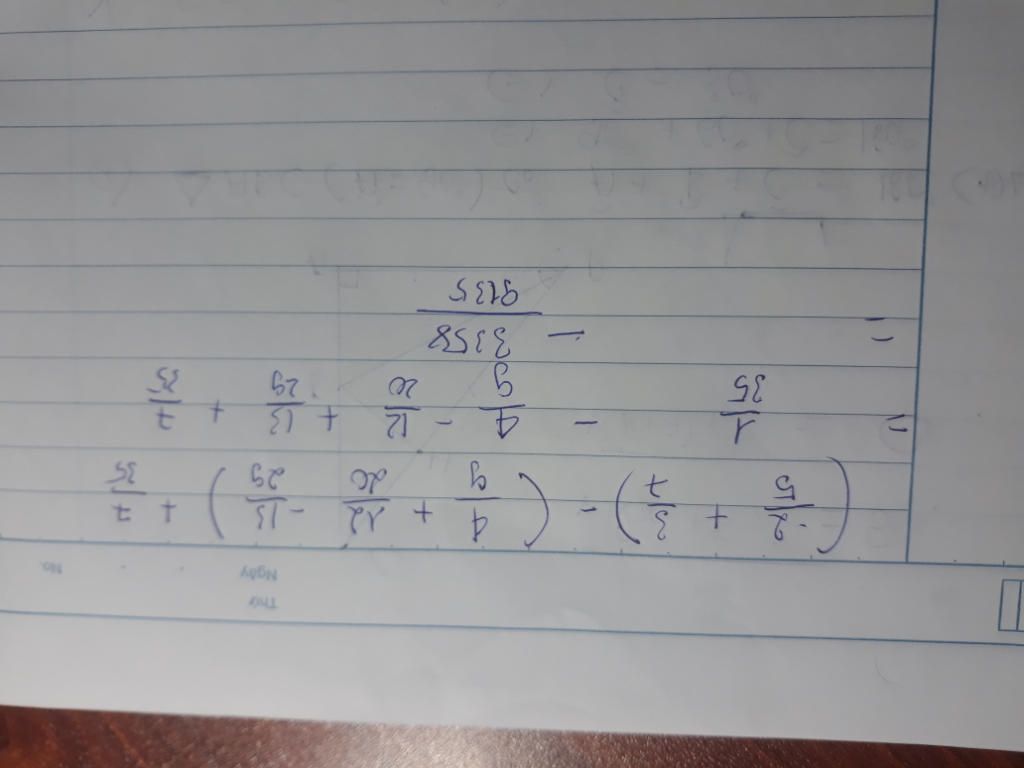 Thứ
Ngày No.
(-2/5 + 3/7) - (4/9 + 12/20 - 13/29) + 7/35
= 1/35 - 4/9 - 12/20 + 13/29 + 7/35
= - 3358/9135